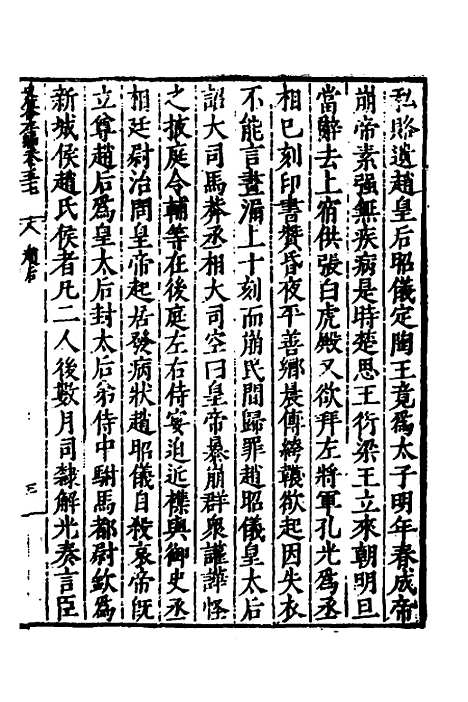 私賂遺趙皇后昭儀定陶王竟為太子明年春成帝
崩帝素强無疾病是時楚思王衍梁王立來朝明旦
當辭去上宿供張白虎殿又欲拜左將軍孔光為丞
相已刻印書贊昏夜平善鄉晨傳絝韈欲起因失衣
不能言晝漏上十刻而崩民間歸罪趙昭儀皇太后
詔大司馬莽丞相大司空曰皇帝暴崩群衆讙譁怪
之掖庭令輔等在後庭左右侍宴迫近襍與御史丞
相廷尉治問皇帝起居發病狀趙昭儀自殺哀帝旣
立尊趙后為皇太后封太后弟侍中駙馬都尉欽為
新城侯趙氏侯者凡二人後數月司隸解光奏言臣
趙后
三